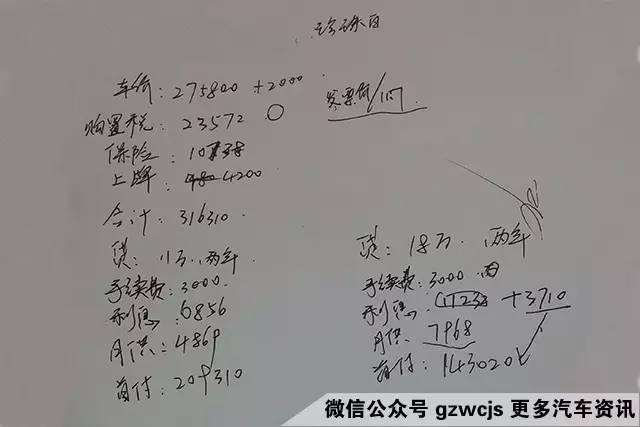 珍珠白
车价: 275800 +2000
购置税: 23572
发票价/1.17
保险: 10
上牌: 4200
合计: 316310
贷: 11万 两年
手续费: 3000
利息: 6856
月供: 4869
首付: 209310
贷: 18万 两年
手续费: 3000
利息: 11238 +3710
月供: 7968
首付: 143020
微信公众号 gzwcjs 更多汽车资讯